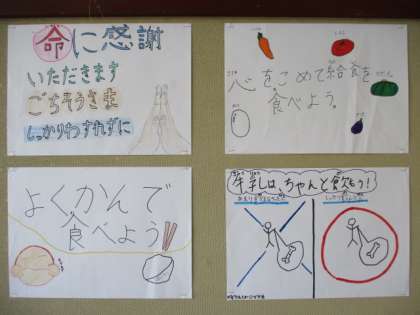 命に感謝
いただきます
ごちそうさま
しっかりわすれずに
心をこめて給食を
食べよう。
よくかんで
食べよう
牛乳は、ちゃんと飲もう!